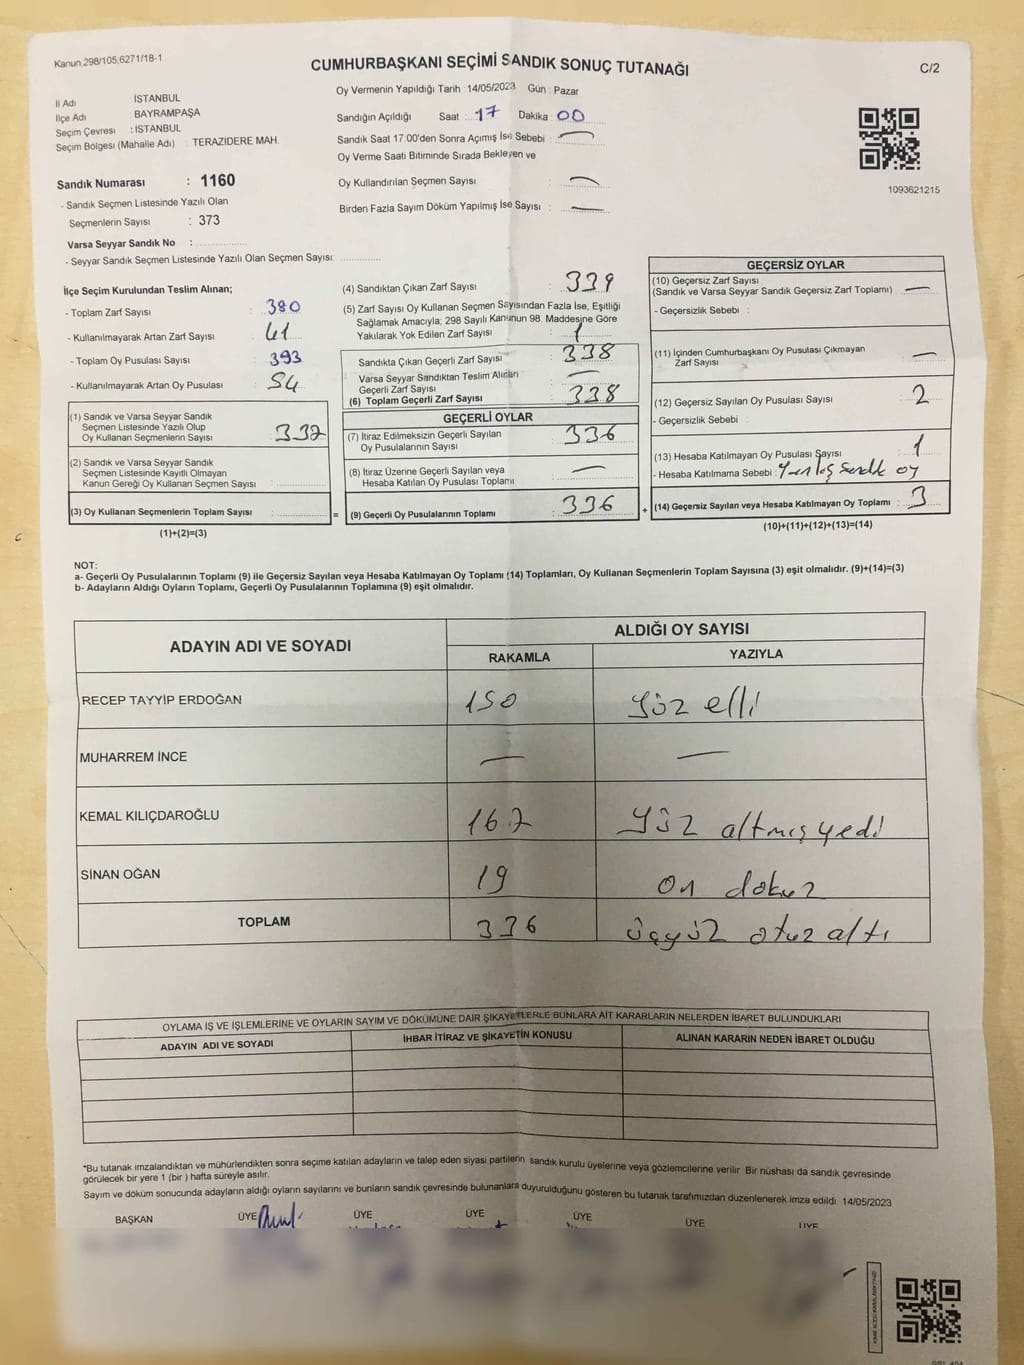 Kanun.298/105,6271/18-1
CUMHURBAŞKANI SEÇİMİ SANDIK SONUÇ TUTANAĞI
C/2
İl Adı : İSTANBUL
İlçe Adı : BAYRAMPAŞA
Seçim Çevresi : İSTANBUL
Seçim Bölgesi (Mahalle Adı) : TERAZİDERE MAH.
Sandık Numarası : 1160
- Sandık Seçmen Listesinde Yazılı Olan
Seçmenlerin Sayısı : 373
Varsa Seyyar Sandık No :
- Seyyar Sandık Seçmen Listesinde Yazılı Olan Seçmen Sayısı:
Oy Vermenin Yapıldığı Tarih : 14/05/2023 Gün : Pazar
Sandığın Açıldığı Saat : 17 Dakika : 00
Sandık Saat 17:00'den Sonra Açımış İse Sebebi : —
Oy Verme Saati Bitiminde Sırada Bekleyen ve
Oy Kullandırılan Seçmen Sayısı : —
Birden Fazla Sayım Döküm Yapılmış İse Sayısı : —
1093621215
İlçe Seçim Kurulundan Teslim Alınan;
- Toplam Zarf Sayısı : 380
- Kullanılmayarak Artan Zarf Sayısı : 41
- Toplam Oy Pusulası Sayısı : 393
- Kullanılmayarak Artan Oy Pusulası : 54
(1) Sandık ve Varsa Seyyar Sandık
Seçmen Listesinde Yazılı Olup
Oy Kullanan Seçmenlerin Sayısı :
(2) Sandık ve Varsa Seyyar Sandık
Seçmen Listesinde Kayıtlı Olmayan
Kanun Gereği Oy Kullanan Seçmen Sayısı :
(3) Oy Kullanan Seçmenlerin Toplam Sayısı :
(1)+(2)=(3)
(4) Sandıktan Çıkan Zarf Sayısı : 339
(5) Zarf Sayısı Oy Kullanan Seçmen Sayısından Fazla İse, Eşitliği
Sağlamak Amacıyla; 298 Sayılı Kanunun 98. Maddesine Göre
Yakılarak Yok Edilen Zarf Sayısı : 1
Sandıkta Çıkan Geçerli Zarf Sayısı : 338
Varsa Seyyar Sandıktan Teslim Alınan
Geçerli Zarf Sayısı : —
(6) Toplam Geçerli Zarf Sayısı : 338
GEÇERLİ OYLAR
(7) İtiraz Edilmeksizin Geçerli Sayılan
Oy Pusulalarının Sayısı : 336
(8) İtiraz Üzerine Geçerli Sayılan veya
Hesaba Katılan Oy Pusulası Toplamı : —
= (9) Geçerli Oy Pusulalarının Toplamı : 336 +
GEÇERSİZ OYLAR
(10) Geçersiz Zarf Sayısı
(Sandık ve Varsa Seyyar Sandık Geçersiz Zarf Toplamı) : —
- Geçersizlik Sebebi :
(11) İçinden Cumhurbaşkanı Oy Pusulası Çıkmayan
Zarf Sayısı : —
(12) Geçersiz Sayılan Oy Pusulası Sayısı : 2
- Geçersizlik Sebebi :
(13) Hesaba Katılmayan Oy Pusulası Sayısı : 1
- Hesaba Katılmama Sebebi : Yanlış Sandık oy
(14) Geçersiz Sayılan veya Hesaba Katılmayan Oy Toplamı : 3
(10)+(11)+(12)+(13)=(14)
NOT:
a- Geçerli Oy Pusulalarının Toplamı (9) ile Geçersiz Sayılan veya Hesaba Katılmayan Oy Toplamı (14) Toplamları, Oy Kullanan Seçmenlerin Toplam Sayısına (3) eşit olmalıdır. (9)+(14)=(3)
b- Adayların Aldığı Oyların Toplamı, Geçerli Oy Pusulalarının Toplamına (9) eşit olmalıdır.
ADAYIN ADI VE SOYADI ALDIĞI OY SAYISI
RAKAMLA YAZIYLA
RECEP TAYYİP ERDOĞAN 150 Yüz elli
MUHARREM İNCE — —
KEMAL KILIÇDAROĞLU 167 Yüz altmış yedi
SİNAN OĞAN 19 on dokuz
TOPLAM 336 üçyüz otuz altı
OYLAMA İŞ VE İŞLEMLERİNE VE OYLARIN SAYIM VE DÖKÜMÜNE DAİR ŞİKAYETLERLE BUNLARA AİT KARARLARIN NELERDEN İBARET BULUNDUKLARI
ADAYIN ADI VE SOYADI İHBAR İTİRAZ VE ŞİKAYETİN KONUSU ALINAN KARARIN NEDEN İBARET OLDUĞU
*Bu tutanak imzalandıktan ve mühürlendikten sonra seçime katılan adayların ve talep eden siyasi partilerin sandık kurulu üyelerine veya gözlemcilerine verilir. Bir nüshası da sandık çevresinde
görülecek bir yere 1 (bir ) hafta süreyle asılır.
Sayım ve döküm sonucunda adayların aldığı oyların sayılarını ve bunların sandık çevresinde bulunanlara duyurulduğunu gösteren bu tutanak tarafımızdan düzenlenerek imza edildi. 14/05/2023
BAŞKAN ÜYE ÜYE ÜYE ÜYE ÜYE ÜYE